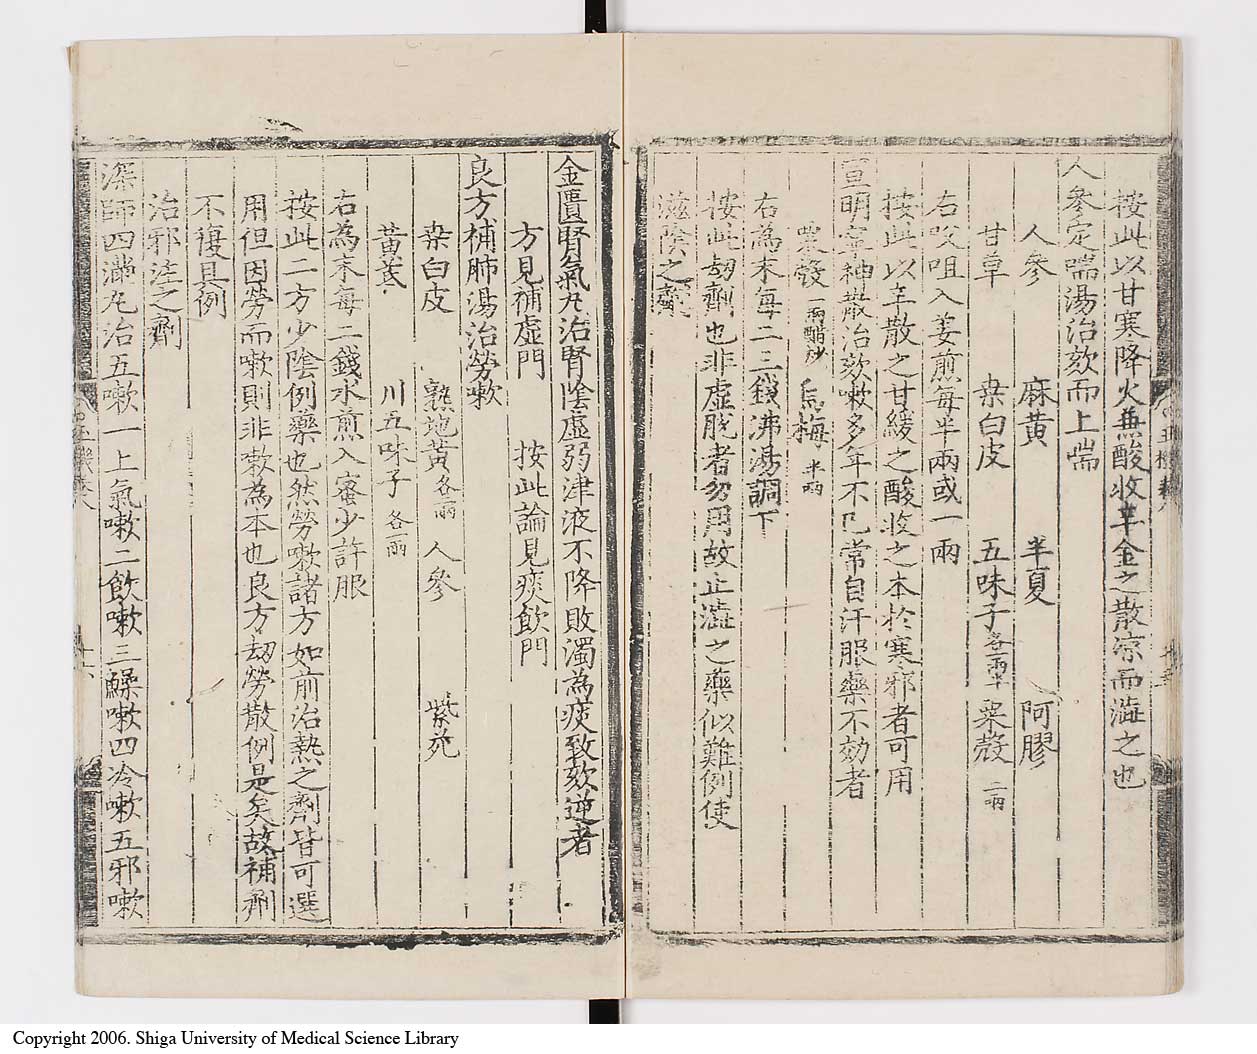 按此以甘寒降火無酸收辛金之散凉而澁之也
人參定喘湯治欬而上喘
人參 麻黃 半夏 阿膠
甘草 桒白皮 五味子各一兩半 粟殼二兩
右㕮咀入姜煎每半兩或一兩
按此以辛散之甘緩之酸收之本於寒邪者可用
宣明寧神散治欬嗽多年不已常自汗服藥不効者
粟殼一兩醋炒 烏梅半兩
右為末每二三錢沸湯調下
按此劫劑也非虛脫者勿用故止澁之藥似難例使
滋陰之劑
金匱腎氣丸治腎陰虛弱津液不降敗濁為痰致欬逆者
方見補虛門 按此論見痰飲門
良方補肺湯治勞嗽
桒白皮 熟地黃各一兩 人參 紫菀
黃茋 川五味子各一兩
右為末每二錢水煎入蜜少許服
按此二方少陰例藥也然勞嗽諸方如前治熱之劑皆可選
用但因勞而嗽則非嗽為本也良方劫勞散例是矣故補劑
不復具例
治邪注之劑
深師四滿丸治五嗽一上氣嗽二飲嗽三鱢嗽四冷嗽五邪嗽
Copyright 2006. Shiga University of Medical Science Library